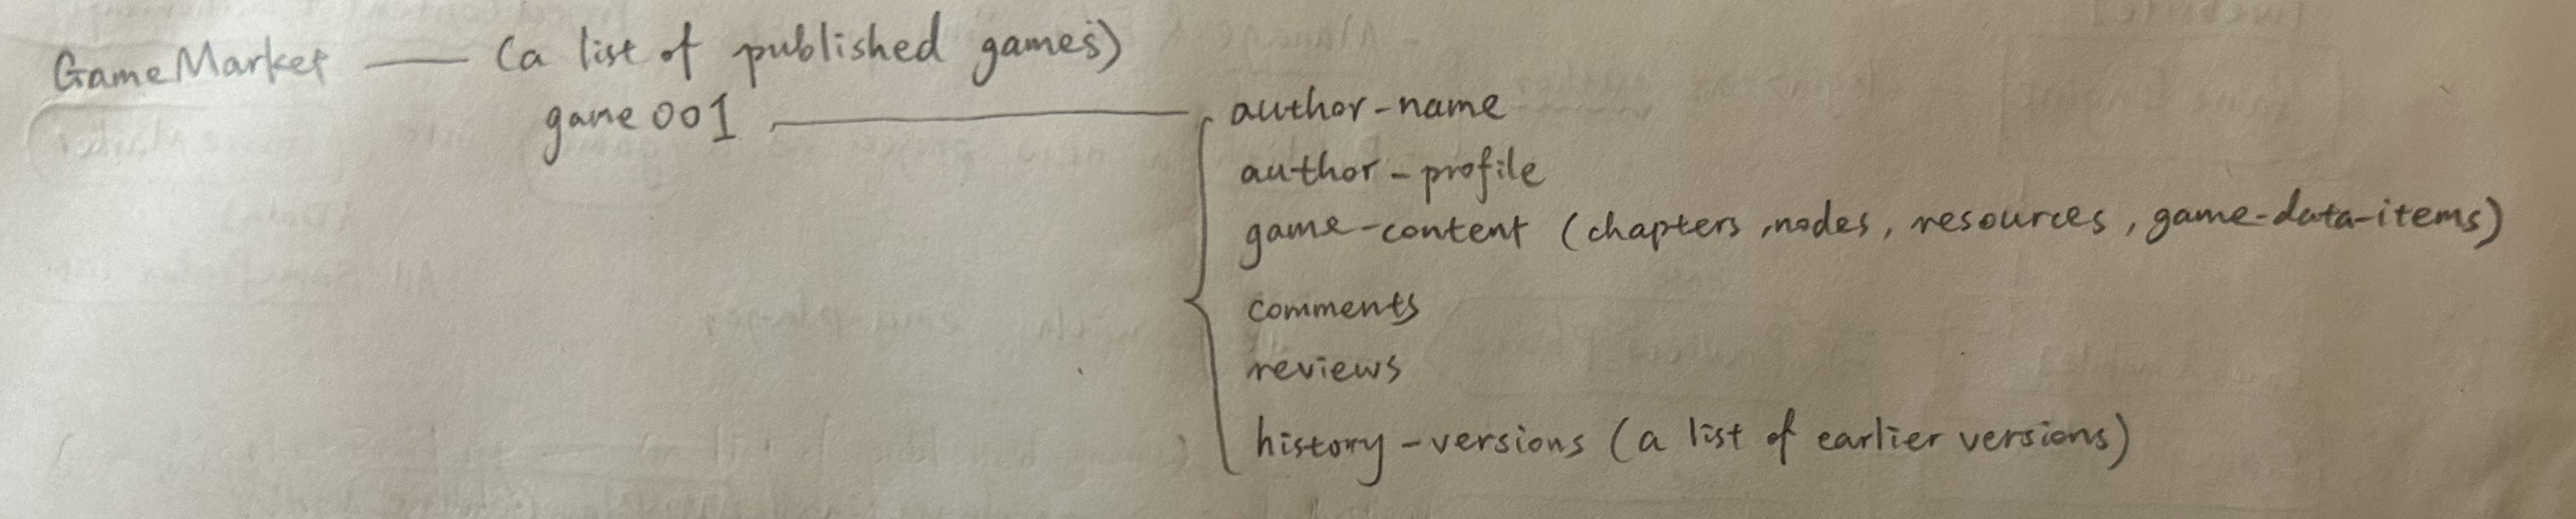 GameMarket — (a list of published games)
game001 — author-name
author-profile
game-content (chapters, nodes, resources, game-data-items)
comments
reviews
history-versions (a list of earlier versions)